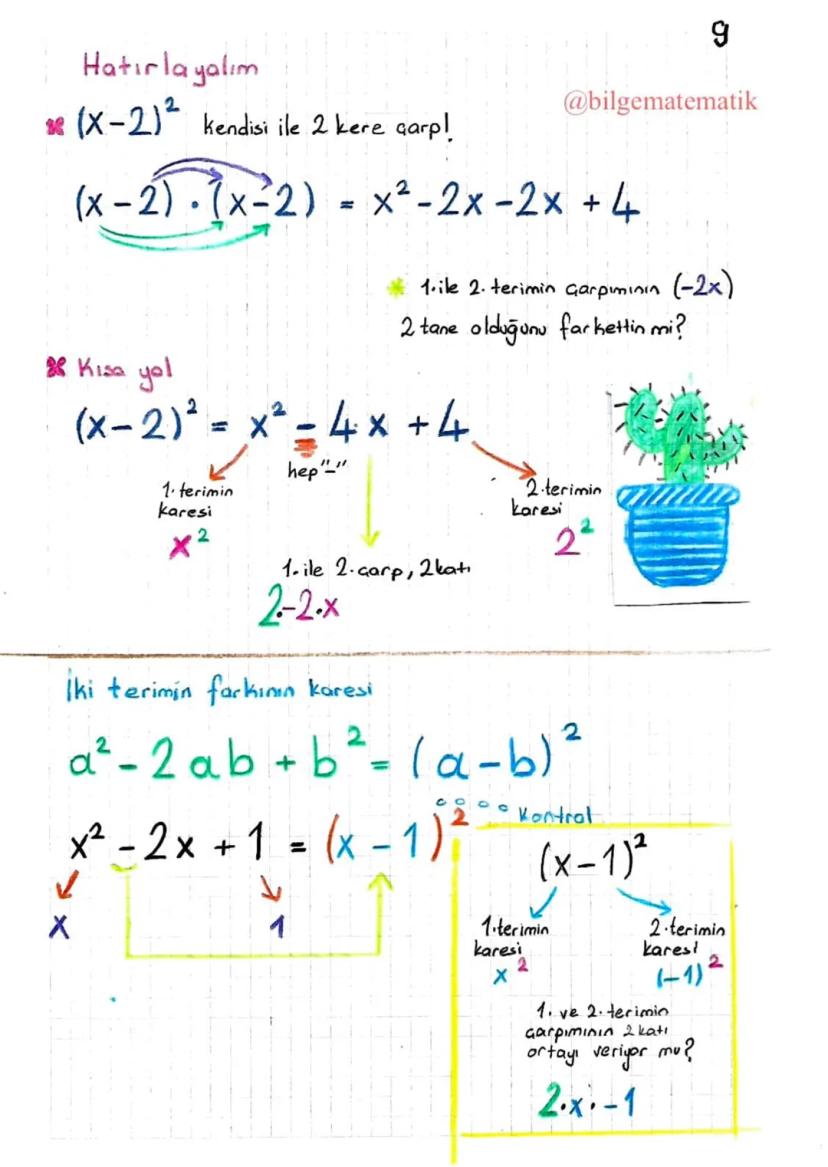 9
Hatırlayalım
@bilgematematik
(x-2)² kendisi ile 2 kere çarp!
(x-2)·(x-2) = x²-2x-2x+4
1. ile 2. terimin çarpımının (-2x)
2 tane olduğunu farkettin mi?
Kısa yol
(x-2)² = x² - 4x + 4
hep "-"
1. terimin
karesi
x²
2. terimin
karesi
2²
1. ile 2. çarp, 2 katı
2.-2.x
İki terimin farkının karesi
a² - 2ab + b² = (a-b)²
x² - 2x + 1 = (x-1)²
x
1
Kontrol
(x-1)²
1. terimin
karesi
x²
2. terimin
karesi
(-1)²
1. ve 2. terimin
çarpımının 2 katı
ortayı veriyor mu?
2.x.-1